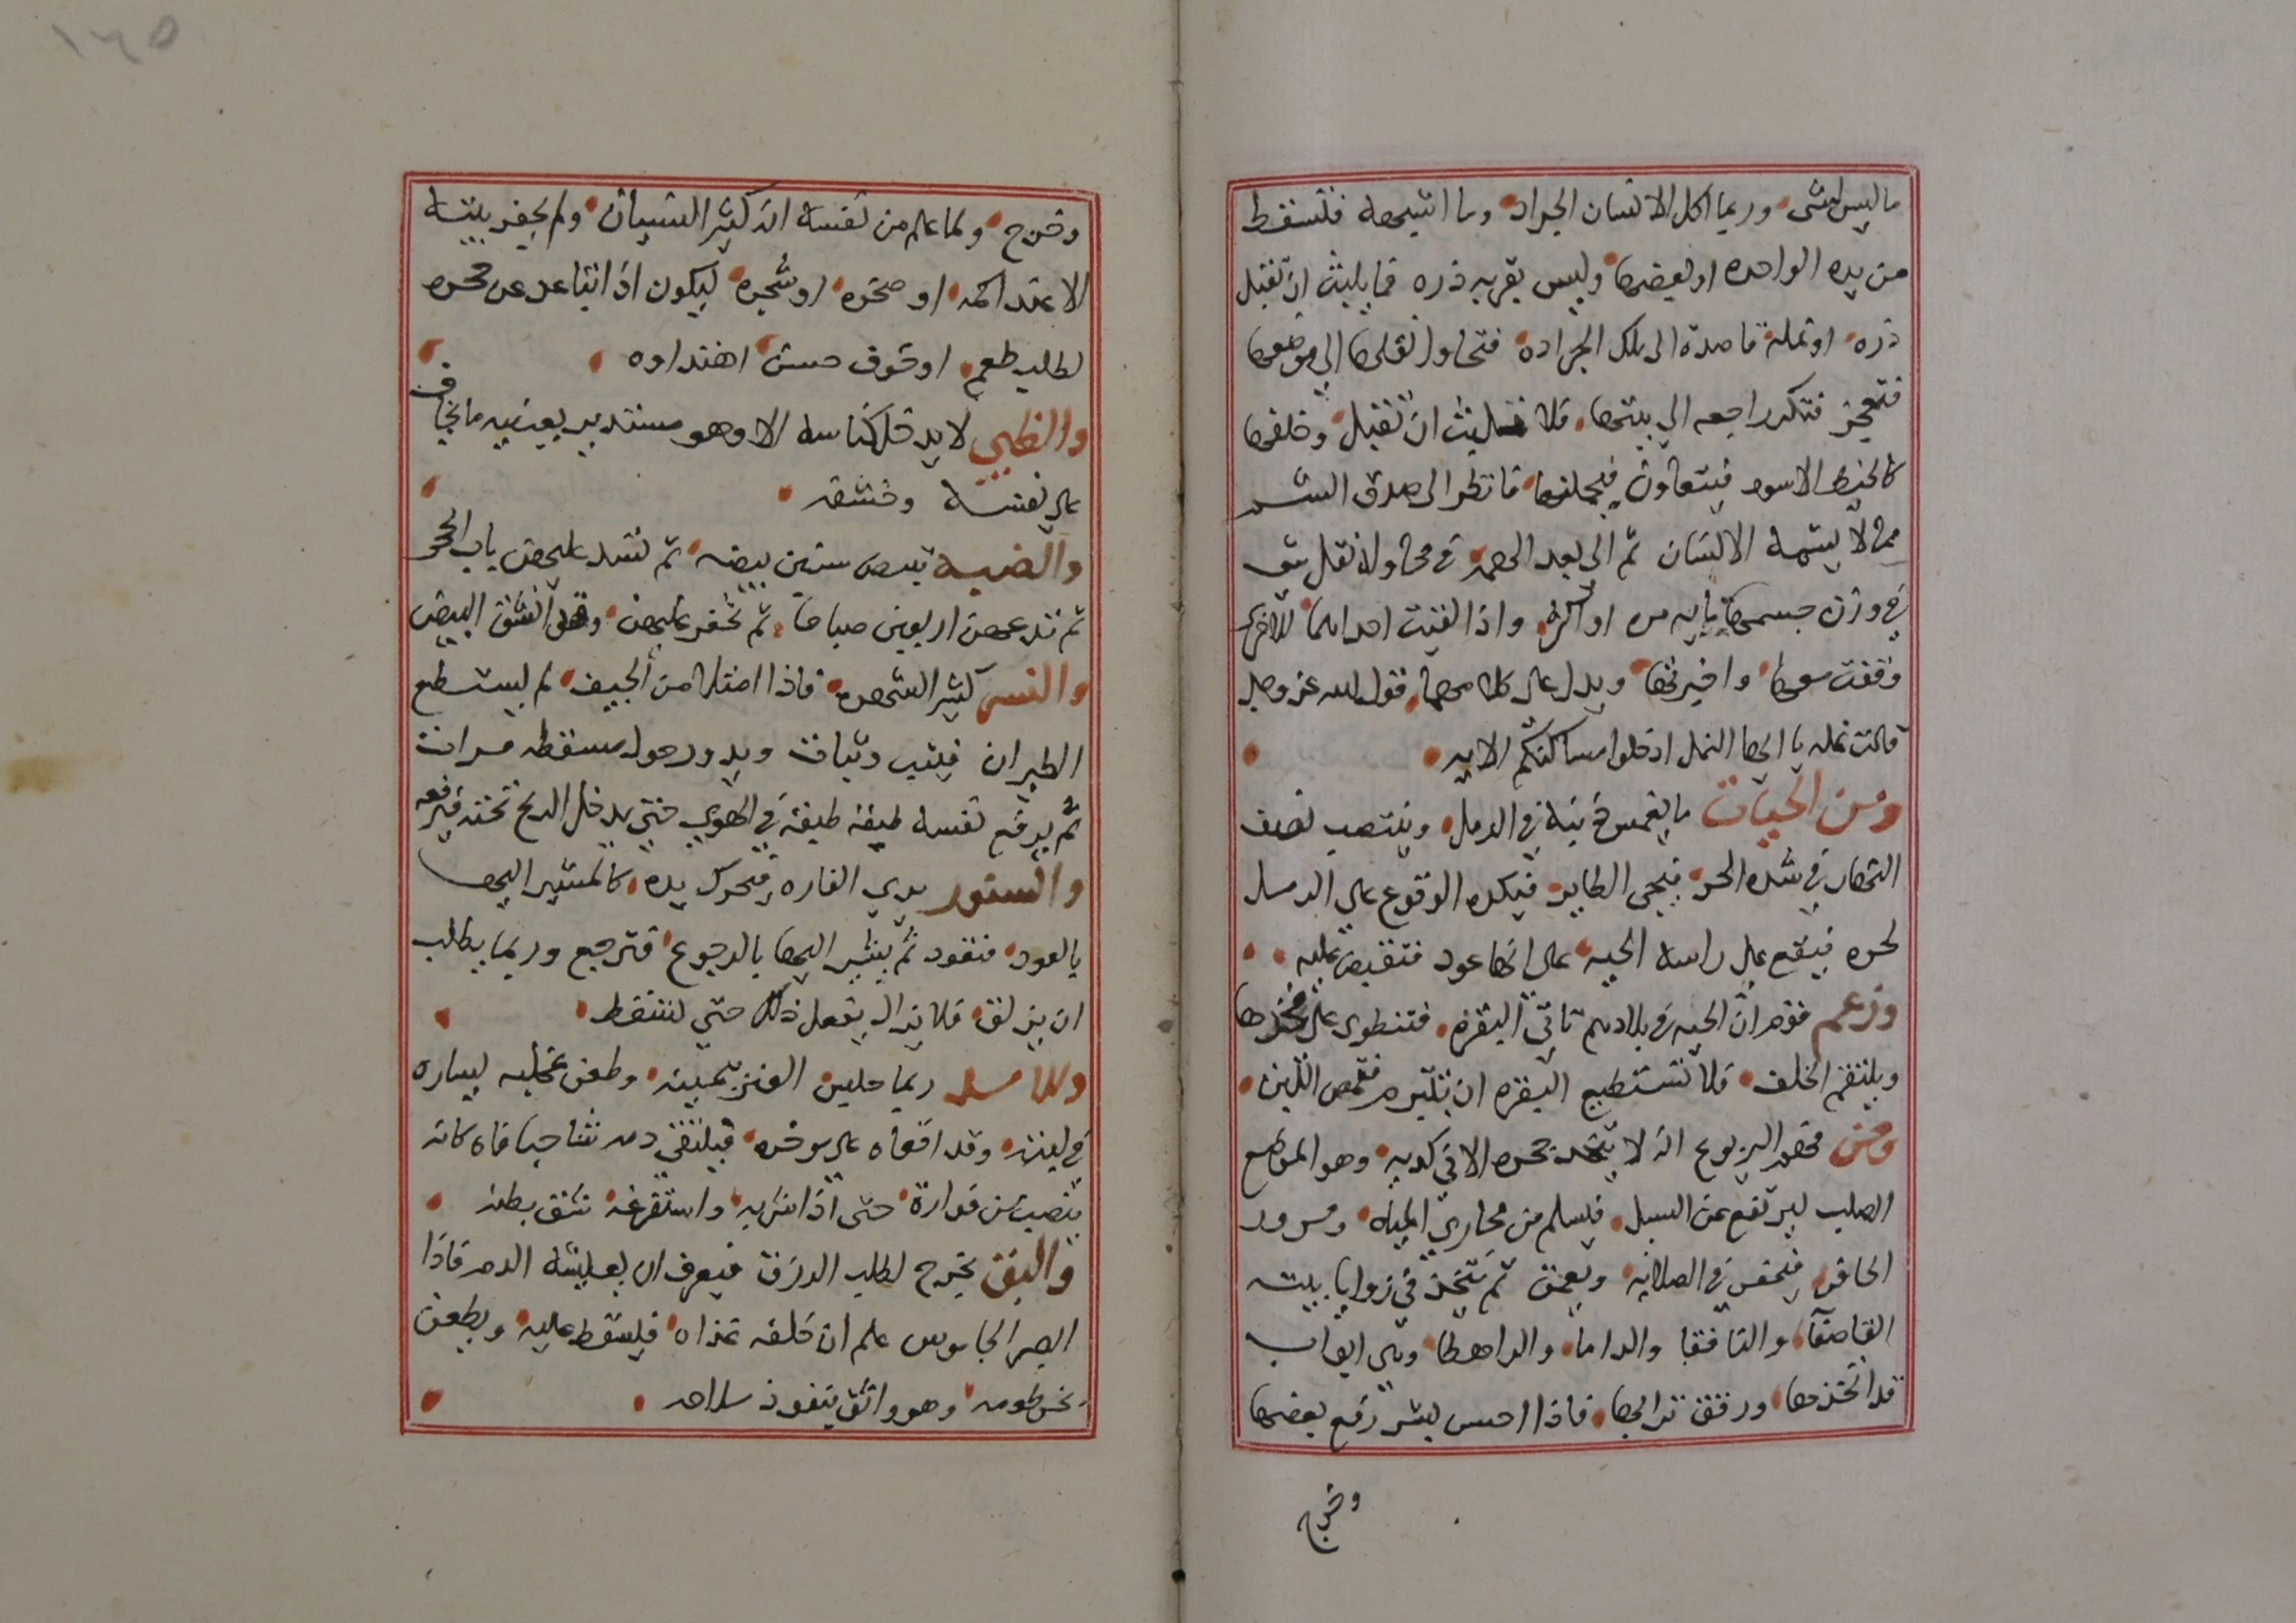 ما ليس لشى وربما اكل الانسان الجراد وما اشبهه فتسقط
من يده الواحده او بعضها وليس بقربه ذره فما يلبث ان تقبل
ذره او نملة قاصدة الى تلك الجراده فتحاول نقلها الي موضعها
فتعجز فتكر راجعه الي بيتها فلا تلبث ان تقبل وخلفها
كالخيط الاسود فيتعاون فيحملنها فانظر الى صدق الشم
مما لا يشمه الانسان ثم الي بعد الهمه في محاولة نقل شى
في وزن جسمها مايه مره او اكثر واذا لقيت احداهما الاخرى
وقفت معها واخبرتها ويدل على كلامهما قول الله عز وجل
قالت نمله يا ايها النمل ادخلوا مساكنكم الايه
ومن الحيات ما يغمس ذنبه في الرمل وينتصب نصف
النهار في شده الحر فيجى الطاير فيكره الوقوع على الرمل
لحره فيقع على راس الحيه على انها عود فتقبض عليه
وزعم قوم ان الحيه في بلادهم تاتي البقره فتنطوى على فخذها
ويلتقم الخلف فلا تستطيع البقره ان تتزمزم فتمص اللبن
ومن فهم اليربوع انه لا يتخذ جحره الا في كديه وهو الموضع
الصلب ليرتفع عن السيل فيسلم من مجاري المياه ومرور
الحافر فيحفر في الصلابه ويعمق ثم يتخذ في زوايا بيته
القاصعا والنافقا والداما والراهطا وهى ابواب
قد اتخذها ورقق ترابها فاذا احس بشر رفع بعضها
وخرج
وخرج ولما علم من نفسه انه كثير النسيان ولم يحفر بيته
الا عند اكمه او صخره او شجره ليكون اذا تباعد عن جحره
لطلب طعم او خوف حسن اهتداوه
والظبي لا يدخل كناسه الا وهو مستدبر بعينيه ما يخاف
على نفسه وخشفه
والضبه تبيض ستين بيضه ثم تسد عليهن باب الجحر
ثم تدعهن اربعين صباحا ثم تحفر عليهن وقد انشق البيض
والنسر كثير الشهوه فاذا امتلا من الجيف لم يستطع
الطيران فيثب وثبات ويدور حول مسقطه مرات
ثم يرفع نفسه طبقه طبقه في الهوى حتي يدخل الريح تحته فترفعه
والسنور يري الفاره فيحرك يده كالمشير اليها
بالعود فتعود ثم يشير اليها بالرجوع فترجع وربما يطلب
ان يزلق فلا يزال يفعل ذلك حتي تسقط
وللاسد ربما جلس العنز بيمينه وطعن بمخلبه يساره
في لبته وقد اقعاه على موخره فيلتقي دمه شاحبا فاه كانه
ينصب من فواره حتى اذا شربه واستفرغه شق بطنه
والبق يخرج لطلب الرزق فيعرف ان يعيشه الدم فاذا
ابصر الجاموس علم ان خلفه غذاه فيسقط عليه ويطعن
بخرطومه وهو واثق بنفوذ سلاحه
١٦٥